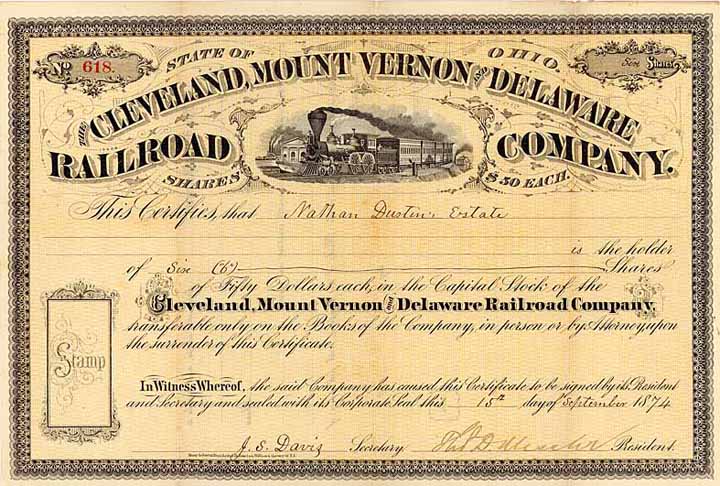 No 618.
STATE OF OHIO.
Six Shares
THE CLEVELAND, MOUNT VERNON AND DELAWARE
RAILROAD COMPANY.
SHARES $50 EACH.
This Certifies, that Nathan Dustin's Estate
is the holder
of Six (6) Shares
of Fifty Dollars each, in the Capital Stock of the
Cleveland, Mount Vernon and Delaware Railroad Company,
transferable only on the Books of the Company, in person or by Attorney upon
the surrender of this Certificate.
Stamp
In Witness Whereof, the said Company has caused this Certificate to be signed by its President
and Secretary and sealed with its Corporate Seal this 15th day of September 1874
J. S. Davis Secretary. President.